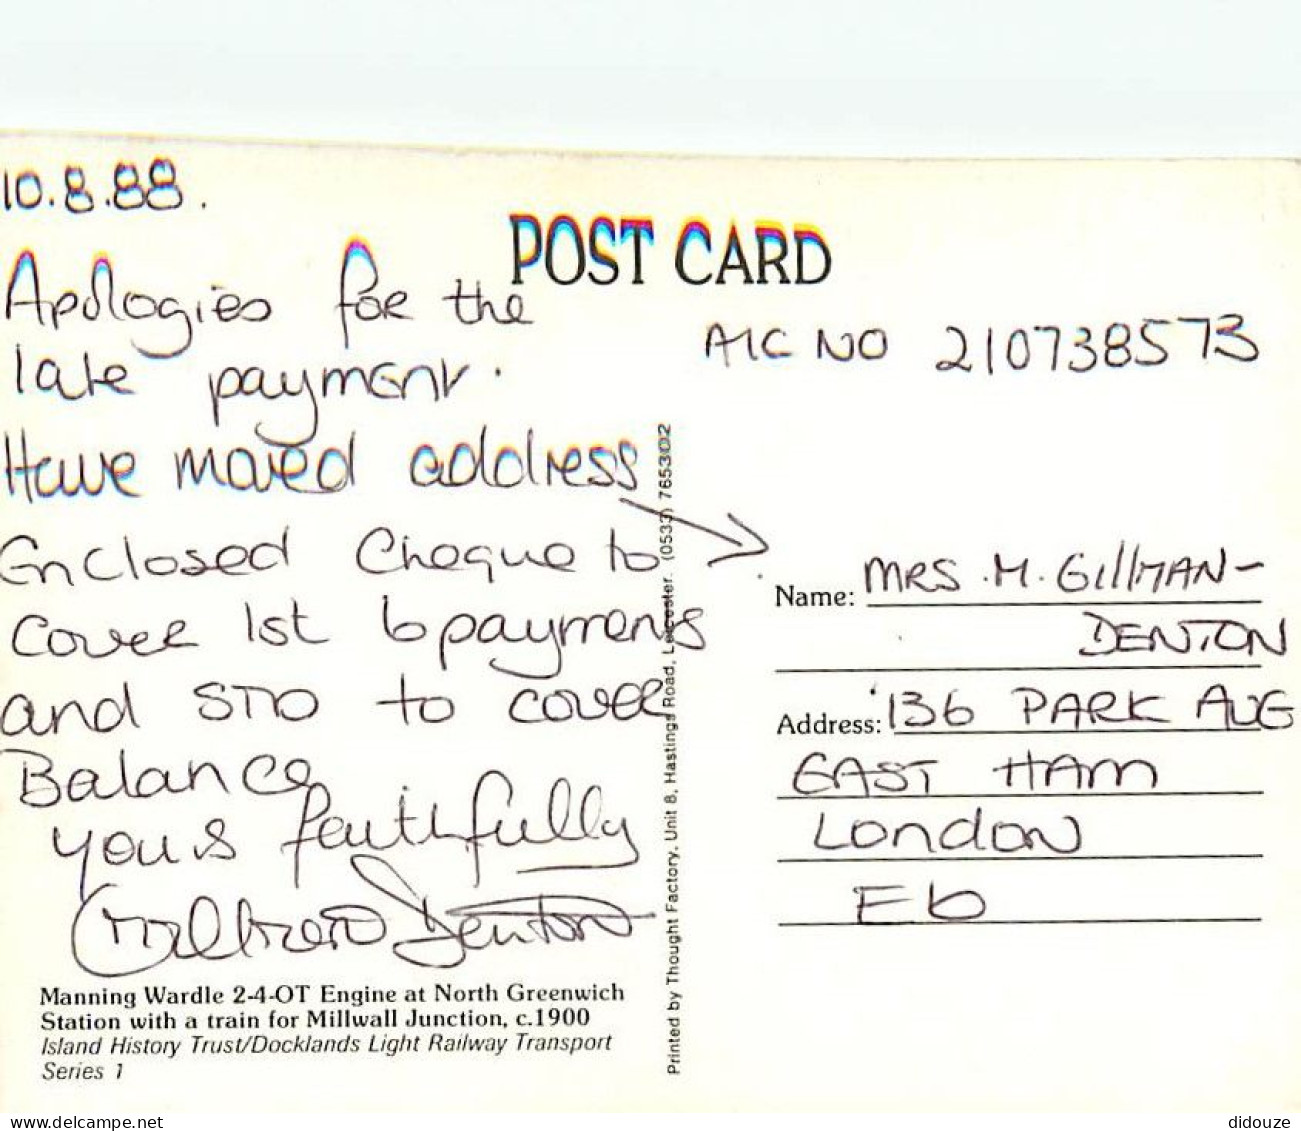 10.8.88.
Apologies for the
late payment.
Have moved address
Enclosed Cheque to
cover 1st 6 payments
and STO to cover
Balance
yours faithfully
Denton
Manning Wardle 2-4-OT Engine at North Greenwich
Station with a train for Millwall Junction, c.1900
Island History Trust/Docklands Light Railway Transport
Series 1
Printed by Thought Factory, Unit 8, Hastings Road, Leicester. (0533) 765302
POST CARD
A/C NO 210738573
Name: MRS .M. GillMAN-
DENTON
Address: '136 PARK AVE
EAST HAM
LONDON
E6
delcampe.net
didouze